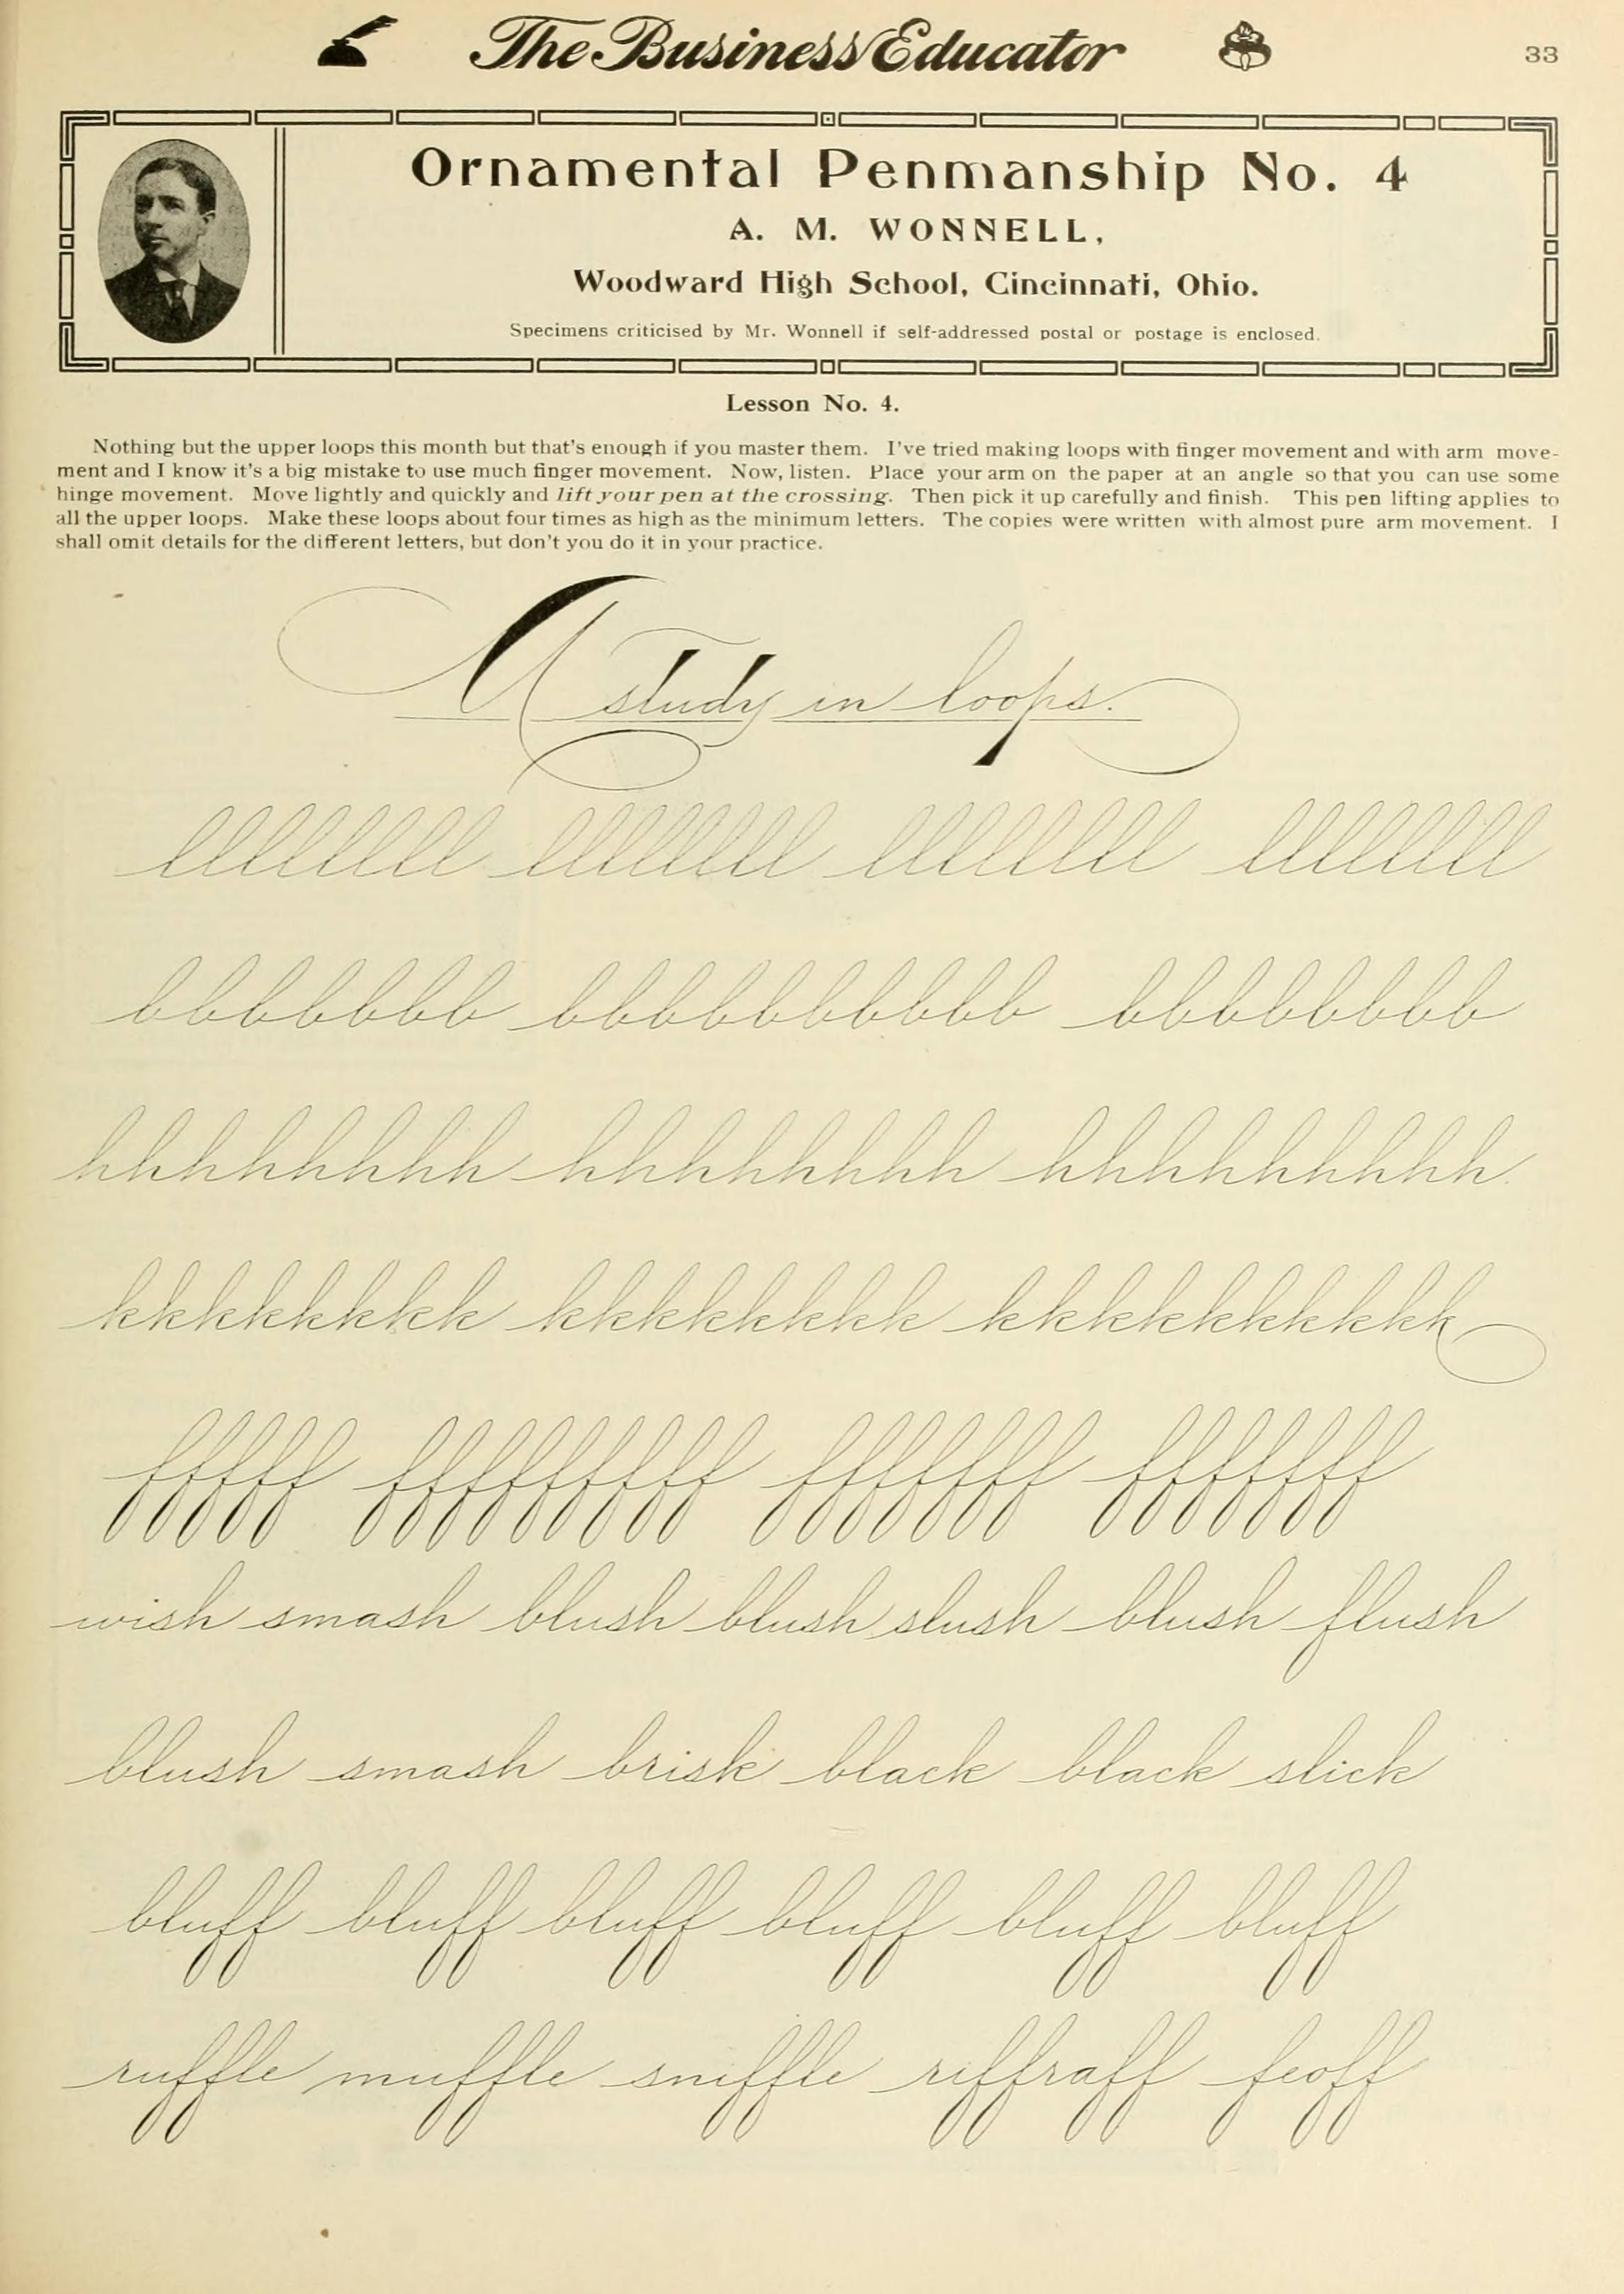 The Business Educator 33
Ornamental Penmanship No. 4
A. M. WONNELL,
Woodward High School, Cincinnati, Ohio.
Specimens criticised by Mr. Wonnell if self-addressed postal or postage is enclosed.
Lesson No. 4.
Nothing but the upper loops this month but that's enough if you master them. I've tried making loops with finger movement and with arm move-
ment and I know it's a big mistake to use much finger movement. Now, listen. Place your arm on the paper at an angle so that you can use some
hinge movement. Move lightly and quickly and lift your pen at the crossing. Then pick it up carefully and finish. This pen lifting applies to
all the upper loops. Make these loops about four times as high as the minimum letters. The copies were written with almost pure arm movement. I
shall omit details for the different letters, but don't you do it in your practice.
A study in loops.
llllllll llllllll llllllll llllllll
bbbbbbb bbbbbbbbbb bbbbbbbb
hhhhhhhhh hhhhhhhhh hhhhhhhhhh
kkkkkkkk kkkkkkkk kkkkkkkkkkk
fffff fffffffff fffffff fffffff
wish smash blush blush slush blush flush
blush smash brisk black black slick
bluff bluff bluff bluff bluff bluff
ruffle muffle sniffle riffraff feoff